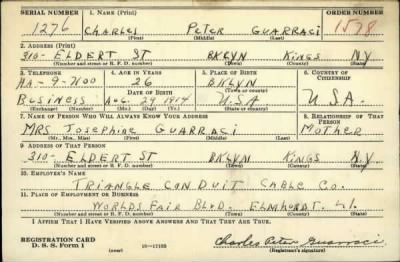 SERIAL NUMBER 1. NAME (Print) ORDER NUMBER
1276 CHARLES PETER GUARRACI 1578
(First) (Middle) (Last)
2. ADDRESS (Print)
310- ELDERT ST BKLYN KINGS N.Y
(Number and street or R. F. D. number) (Town) (County) (State)
3. TELEPHONE 4. AGE IN YEARS 5. PLACE OF BIRTH 6. COUNTRY OF CITIZENSHIP
HA-9-7100 26 BKLYN
DATE OF BIRTH (Town or county)
BUSINESS AUG. 29 1914 USA USA.
(Exchange) (Number) (Mo.) (Day) (Yr.) (State or country)
7. NAME OF PERSON WHO WILL ALWAYS KNOW YOUR ADDRESS 8. RELATIONSHIP OF THAT PERSON
MRS JOSEPHINE GUARRACI MOTHER
(Mr., Mrs., Miss) (First) (Middle) (Last)
9. ADDRESS OF THAT PERSON
310- ELDERT ST BKLYN KINGS N.Y
(Number and street or R. F. D. number) (Town) (County) (State)
10. EMPLOYER'S NAME
TRIANGLE CONDUIT CABLE CO.
11. PLACE OF EMPLOYMENT OR BUSINESS
WORLDS FAIR BLVD. ELMHURST. LI.
(Number and street or R. F. D. number) (Town) (County) (State)
I AFFIRM THAT I HAVE VERIFIED ABOVE ANSWERS AND THAT THEY ARE TRUE.
REGISTRATION CARD
D. S. S. Form 1 16-17105 Charles Peter Guarraci
(Registrant's signature)